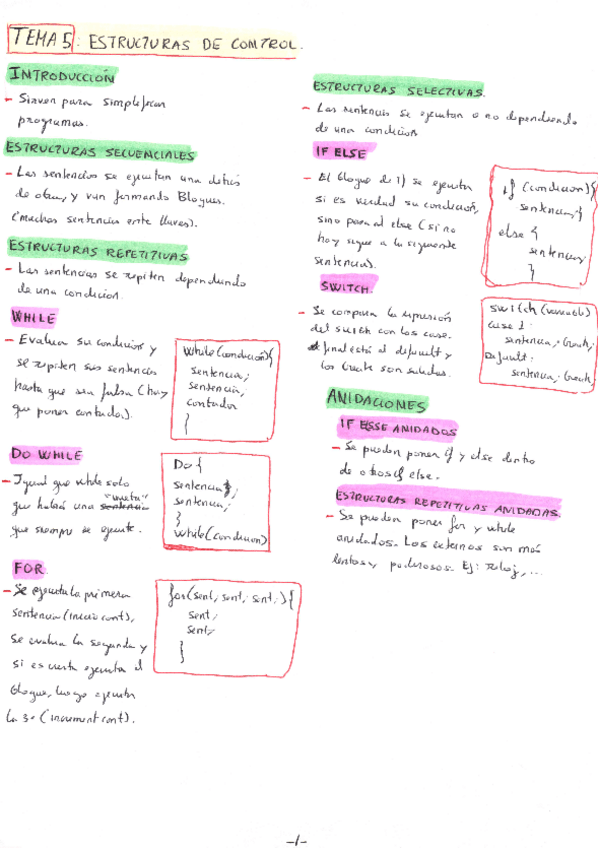 TEMA 5: ESTRUCTURAS DE CONTROL.
INTRODUCCIÓN
- Sirven para simplificar
programas.
ESTRUCTURAS SECUENCIALES
- Las sentencias se ejecutan una detrás
de otra, y van formando Bloques.
(muchas sentencias entre llaves).
ESTRUCTURAS REPETITIVAS
- Las sentencias se repiten dependiendo
de una condicion.
WHILE
- Evaluan su condicion y
se repiten sus sentencias
hasta que sea falsa (hay
que poner contador).
while(condición){
sentencia;
sentencia;
contador
}
DO WHILE
- Igual que while solo
que habrá una "vuelta"
que siempre se ejecute.
Do {
sentencia;
sentencia;
}
while(condicion)
FOR
- Se ejecuta la primera
sentencia (inicio cont),
se evalua la segunda y
si es cierta ejecuta el
bloque, luego ejecuta
la 3ª (increment cont).
for(sent; sent; sent;){
sent;
sent;
}
ESTRUCTURAS SELECTIVAS.
- Las sentencias se ejecutan o no dependiendo
de una condicion
IF ELSE
- El bloque de if se ejecuta
si es verdad su condición,
sino pasa al else (si no
hay sigue a la siguiente
sentencia).
if (condicion){
sentencia;}
else {
sentencia;
}
SWITCH.
- Se compara la expresión
del switch con los case.
Al final está el default y
los break son salidas.
switch(variable)
case 1:
sentencia; break;
Default:
sentencia; break;
ANIDACIONES
IF ELSE ANIDADOS
- Se pueden poner if y else dentro
de otros if else.
ESTRUCTURAS REPETITIVAS ANIDADAS.
- Se pueden poner for y while
anidados. Los externos son más
lentos y poderosos. Ej: Reloj, ...
-1-